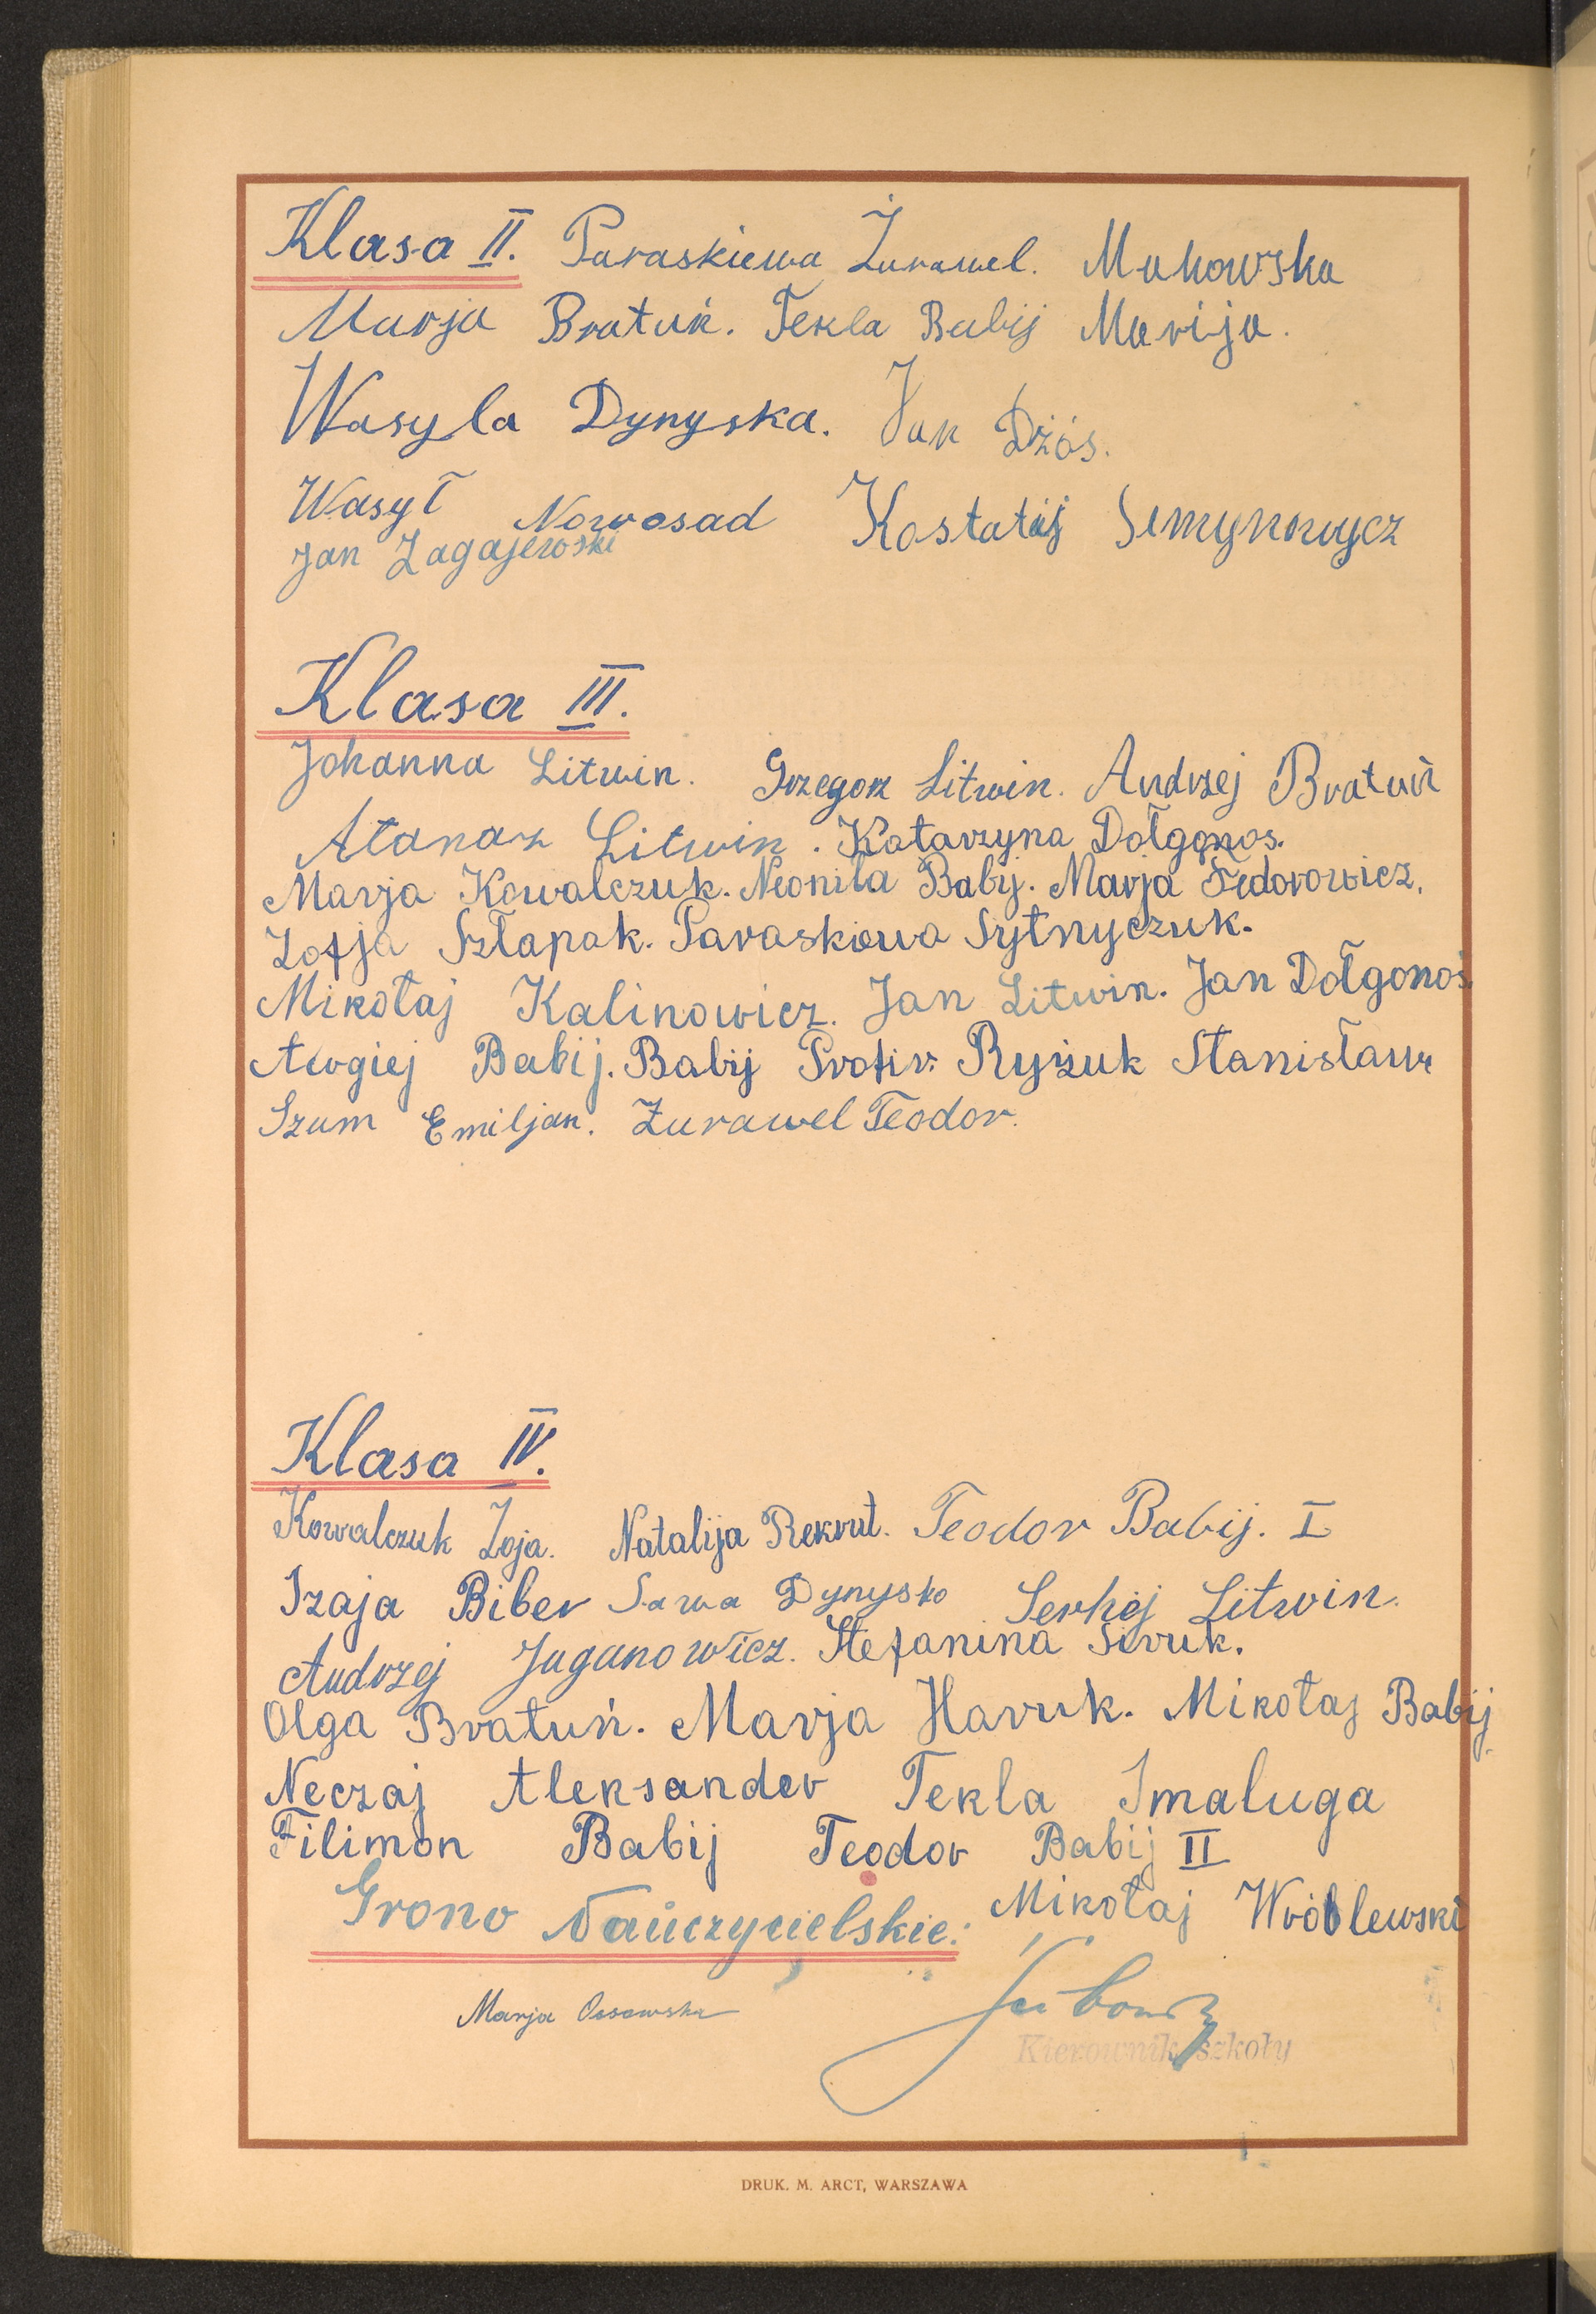 Klasa II. Paraskiewa Żurawel. Makowska
Marja Bratuń. Tekla Babij Marija.
Wasyla Dynyska. Jan Dżós.
Wasył Nowosad Kostatij Semynowycz
Jan Zagajewski
Klasa III.
Johanna Litwin. Grzegorz Litwin. Andrzej Bratuń
Atanaz Litwin. Katarzyna Dołgonos.
Marja Kowalczuk. Neonila Babij. Marja Fedorowicz.
Zofja Szłapak. Paraskiewa Sytnyczuk.
Mikołaj Kalinowicz. Jan Litwin. Jan Dołgonos.
Awgiej Babij. Babij Protir. Ryżuk Stanisław
Szum Emiljan. Żurawel Teodor.
Klasa IV.
Kowalczuk Zoja. Natalija Rekrut. Teodor Babij. I
Izaja Biber Sawa Dynysko Serhij Litwin.
Andrzej Juganowicz. Stefanina Siwruk.
Olga Bratuń. Marja Hawruk. Mikołaj Babij
Neczaj Aleksander Tekla Smaluga
Filimon Babij Teodor Babij II
Grono Nauczycielskie: Mikołaj Wróblewski
Marja Ossowska
Kierownik szkoły
DRUK. M. ARCT, WARSZAWA